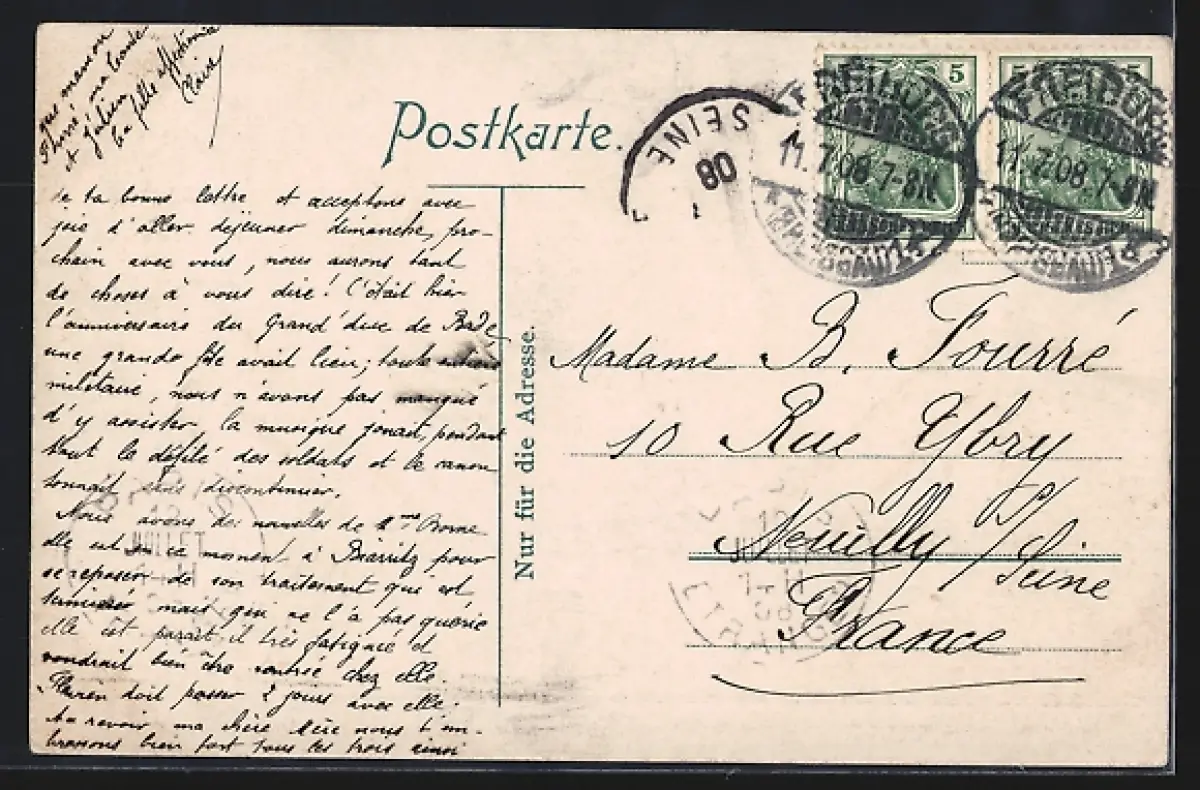 Postkarte.
Nur für die Adresse.
5
5
FREIBURG
11.7.08.7-8N.
(BREISGAU) 1
FREIBURG
11.7.08.7-8N.
(BREISGAU) 1
SEINE
08
Madame B. Fourré
10 Rue Ybry
Neuilly s/ Seine
France
JUILLET
te ta bonne lettre et acceptons avec
joie d'aller déjeuner dimanche, pro-
chain avec vous, nous aurons tant
de choses à vous dire! C'était hier
l'anniversaire du Grand'duc de Bade
une grande fête avait lieu; toute entière
militaire, nous n'avons pas manqué
d'y assister, la musique jouait, pendant
tout le défilé des soldats et le canon
tonnait sans discontinuer.
Nous avons des nouvelles de Mme
elle est en ce moment à Biarritz pour
se reposer de son traitement qui est
terminé mais qui ne l'a pas guérie
elle est parait il très fatiguée et
voudrait bien être rentrée chez elle.
doit passer 2 jours avec elle.
Au revoir ma chère Mère nous t'em-
brassons bien fort tous les trois ainsi
que maman
Fourré, ma tante
et Julien
ta fille affectionnée
Claire